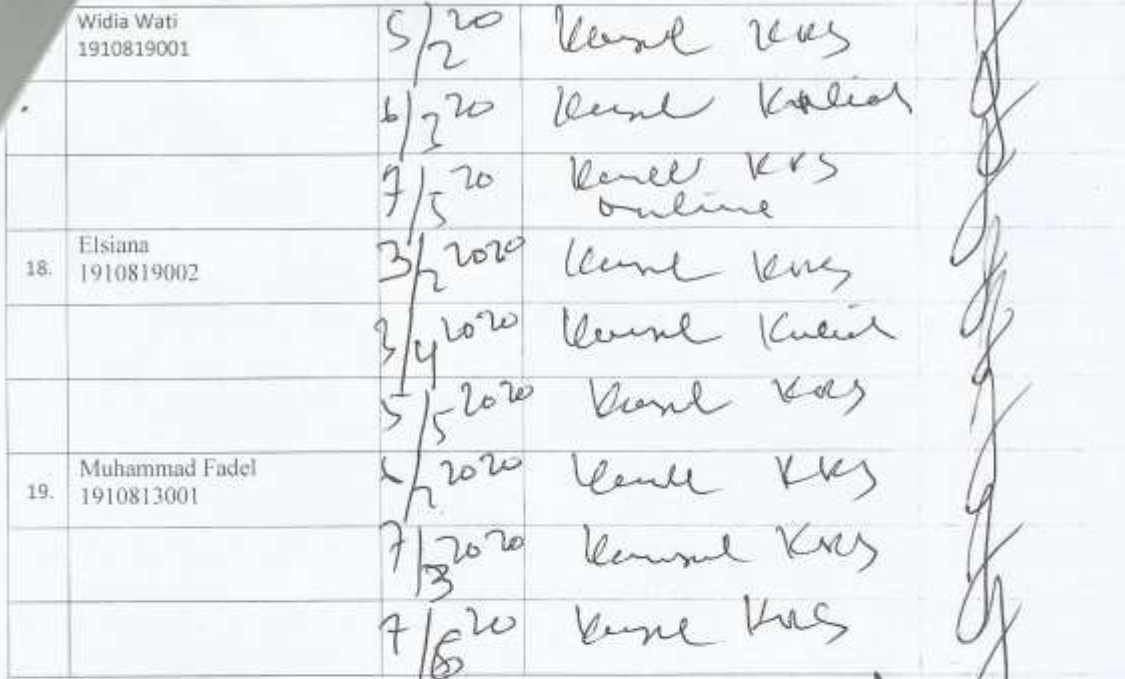 Widia Wati
1910819001
5/2 20 Konsul KRS
6/3 20 Konsul Kuliah
7/5 20 Konsul KRS
online
18. Elsiana
1910819002
3/2 2020 Konsul KRS
3/4 2020 Konsul Kuliah
5/5 2020 Konsul KRS
19. Muhammad Fadel
1910813001
/2 2020 Konsul KRS
7/3 2020 Konsul KRS
7/ 20 Konsul KRS